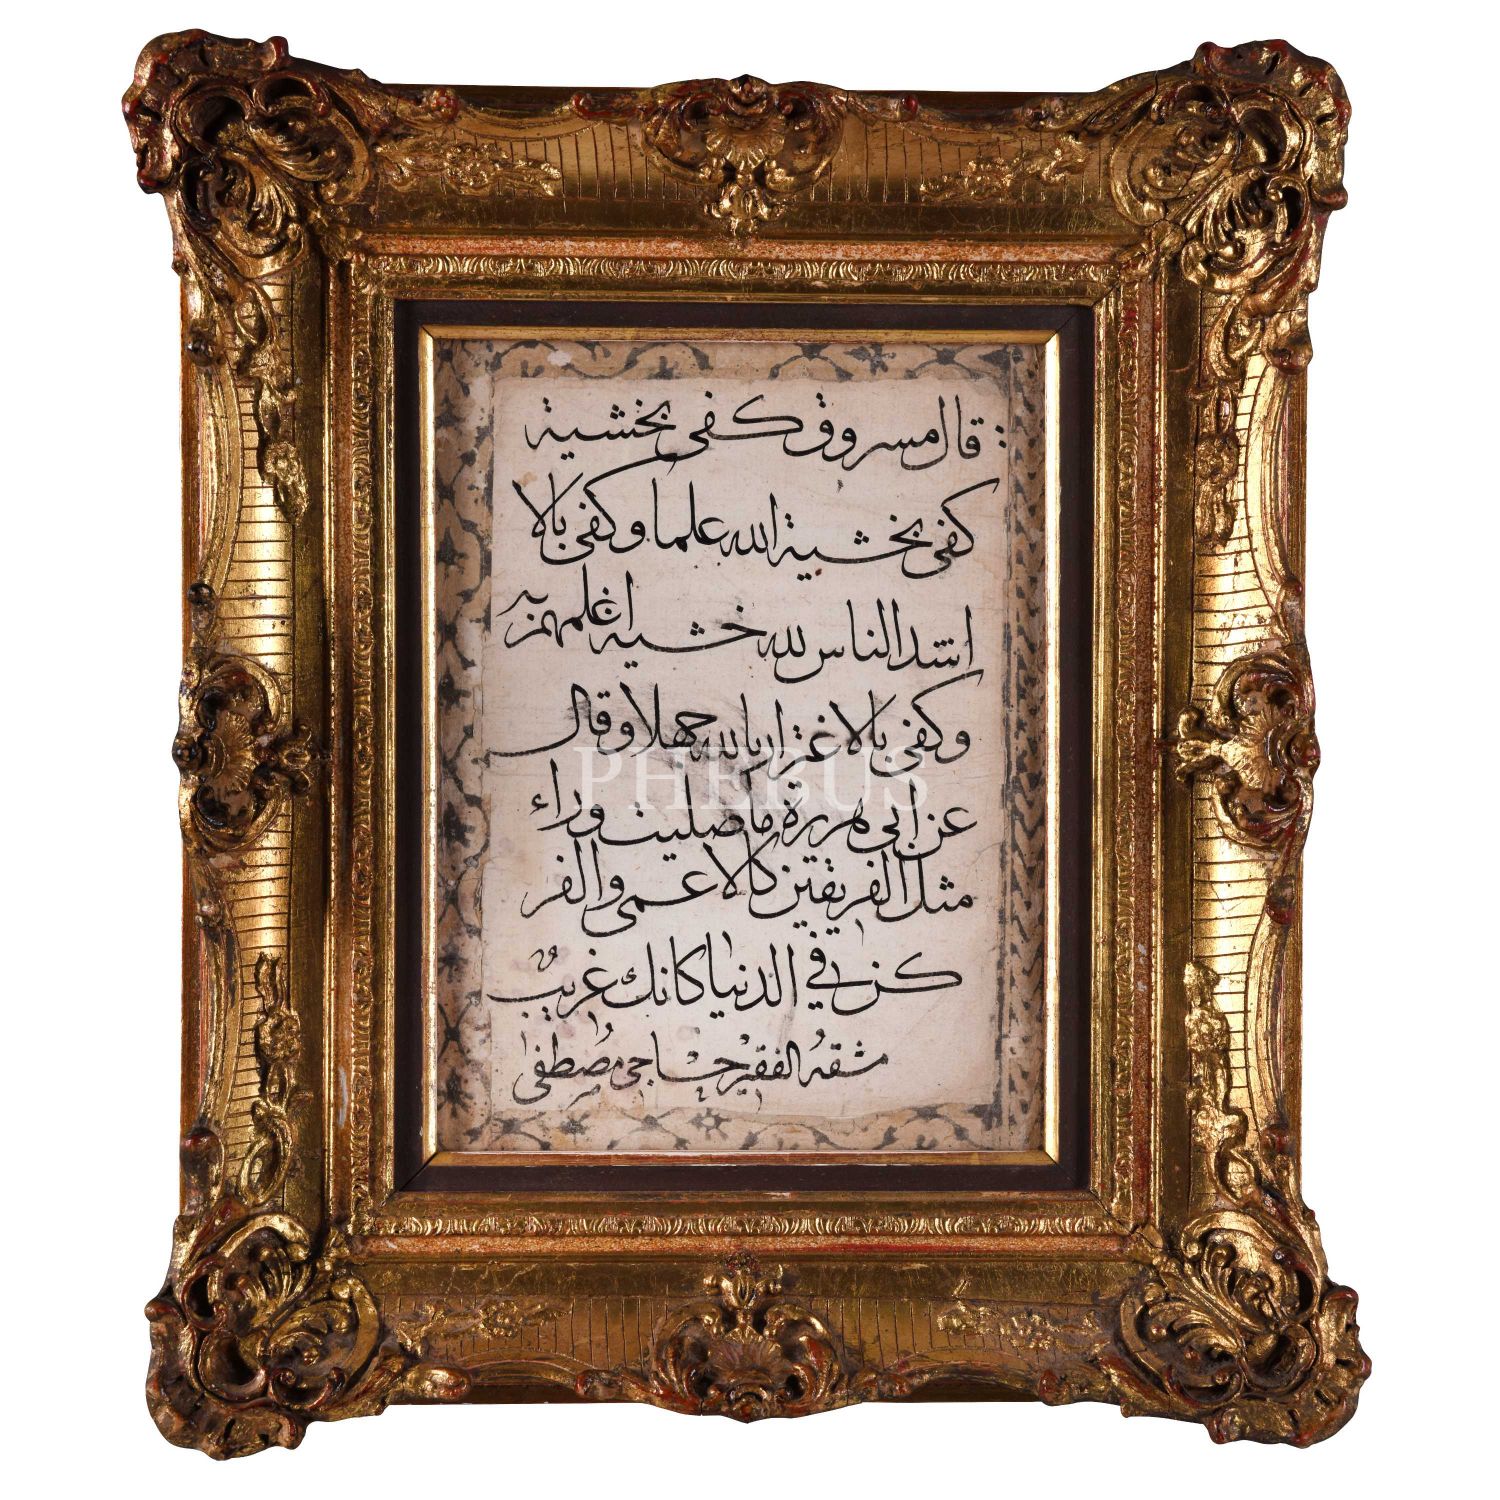 قال مسروق كفى بخشية
كفى بخشية الله علما وكفى بالا
اشد الناس لله خشية اعلمهم به
وكفى بالاغترار بالله جهلا وقال
PHEBUS
عن ابى هريرة ما صليت وراء
مثل الفريقين كالاعمى والفر
كن في الدنيا كانك غريب
مشقه الفقير حاجى مصطفى